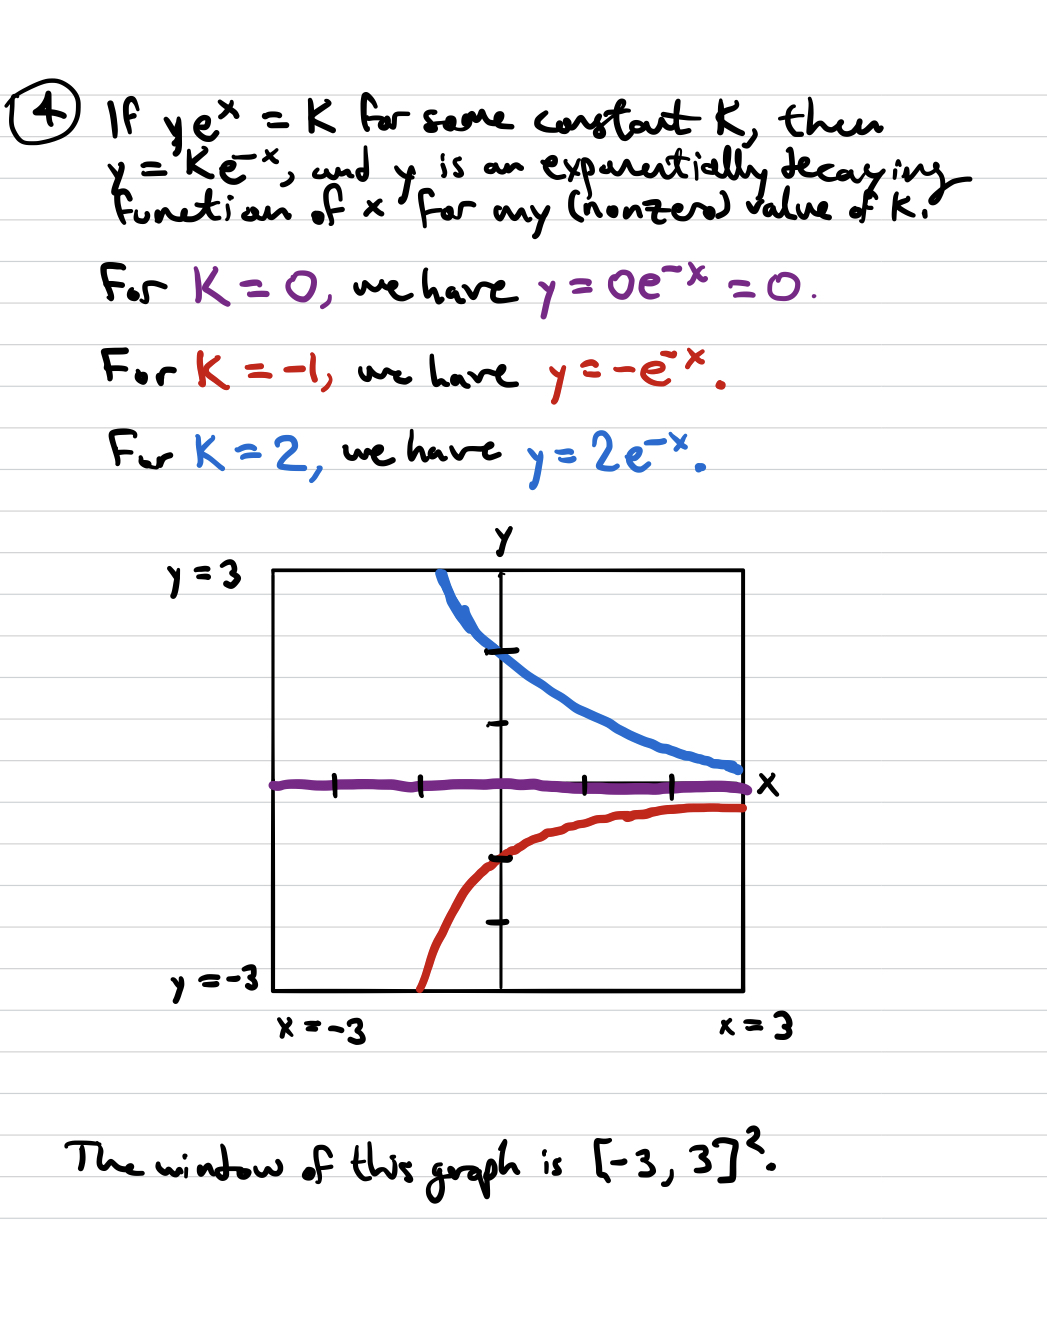 ④ If yeˣ = K for some constant K, then
y = Ke⁻ˣ, and y is an exponentially decaying
function of x for any (nonzero) value of K.
For K = 0, we have y = 0e⁻ˣ = 0.
For K = -1, we have y = -e⁻ˣ.
For K = 2, we have y = 2e⁻ˣ.
y
y = 3
x
y = -3
x = -3 x = 3
The window of this graph is [-3, 3]².